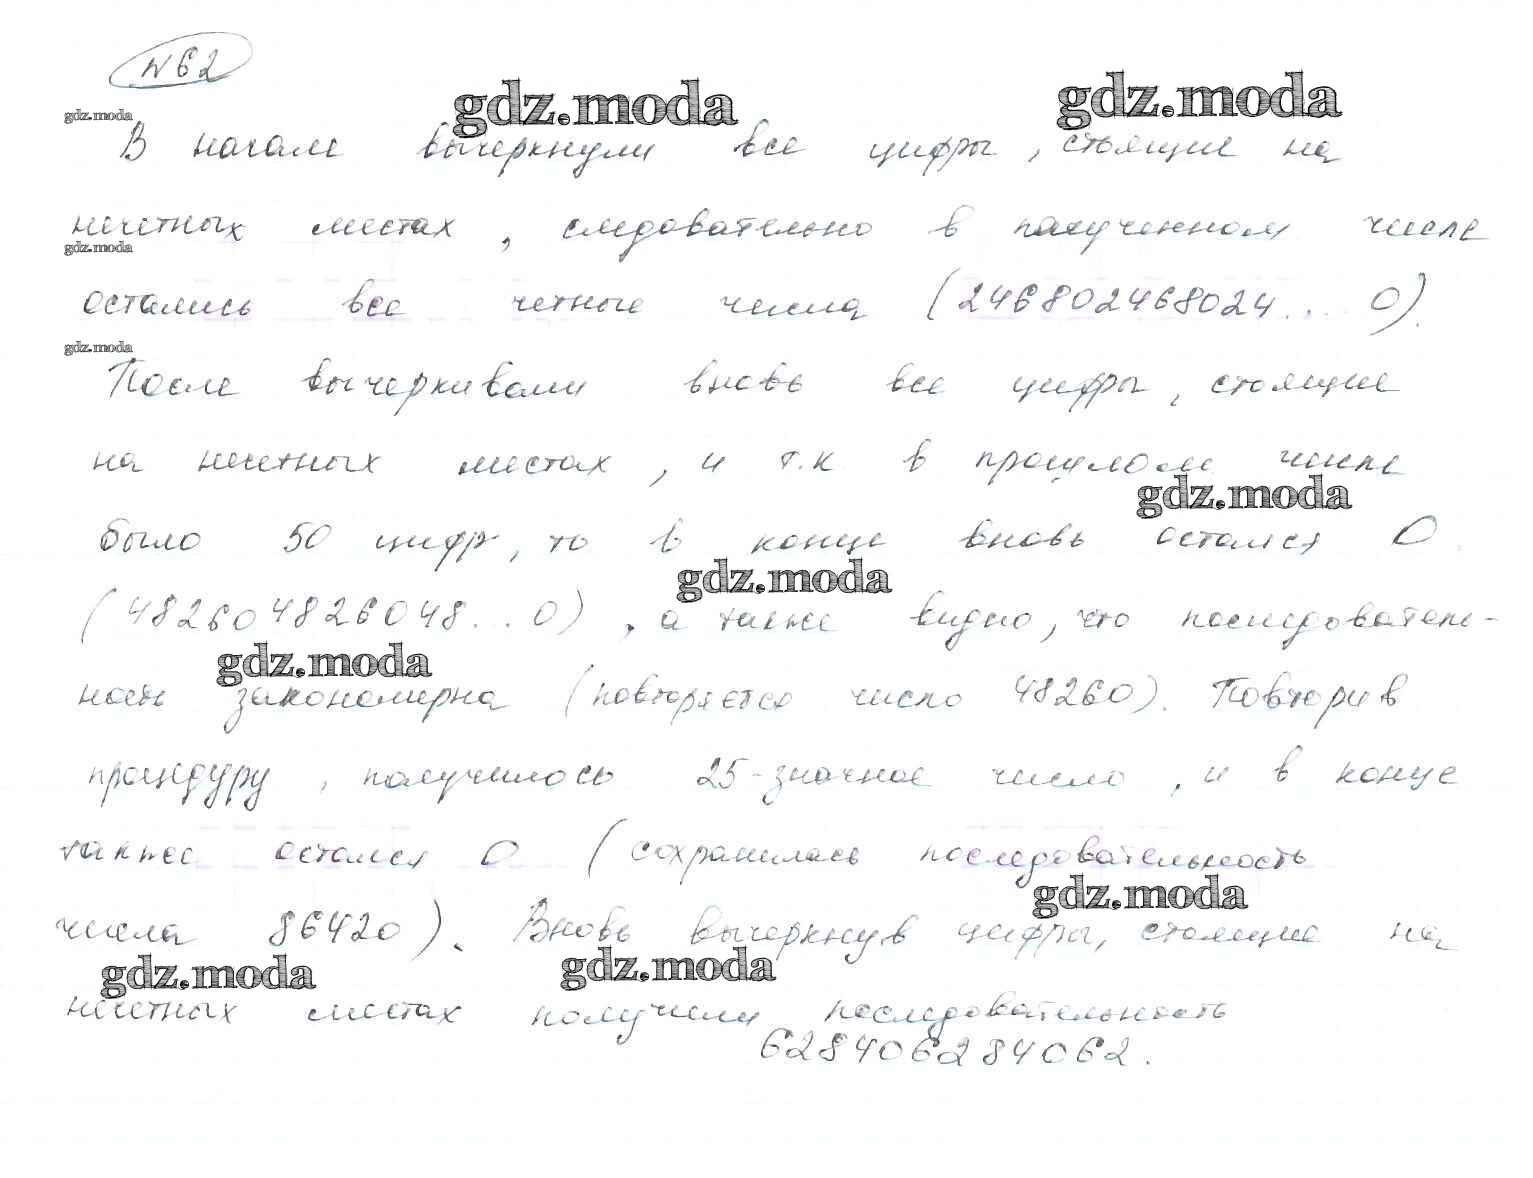 №62
gdz.moda gdz.moda
gdz.moda
В начале вычеркнули все цифры, стоящие на
нечетных местах, следовательно в полученном числе
gdz.moda
остались все четные числа (246802468024...0).
gdz.moda
После вычеркивали вновь все цифры, стоящие
на нечетных местах, и т.к в прошлом числе
gdz.moda
было 50 цифр, то в конце вновь остался 0
gdz.moda
(482604826048...0), а также видно, что последователь-
gdz.moda
ность закономерна (повторяется число 48260). Повторив
процедуру, получилось 25-значное число, и в конце
также остался 0 (сохранилась последовательность
gdz.moda
числа 86420). Вновь вычеркнув цифры, стоящие на
gdz.moda gdz.moda
нечетных местах получили последовательность
628406284062.